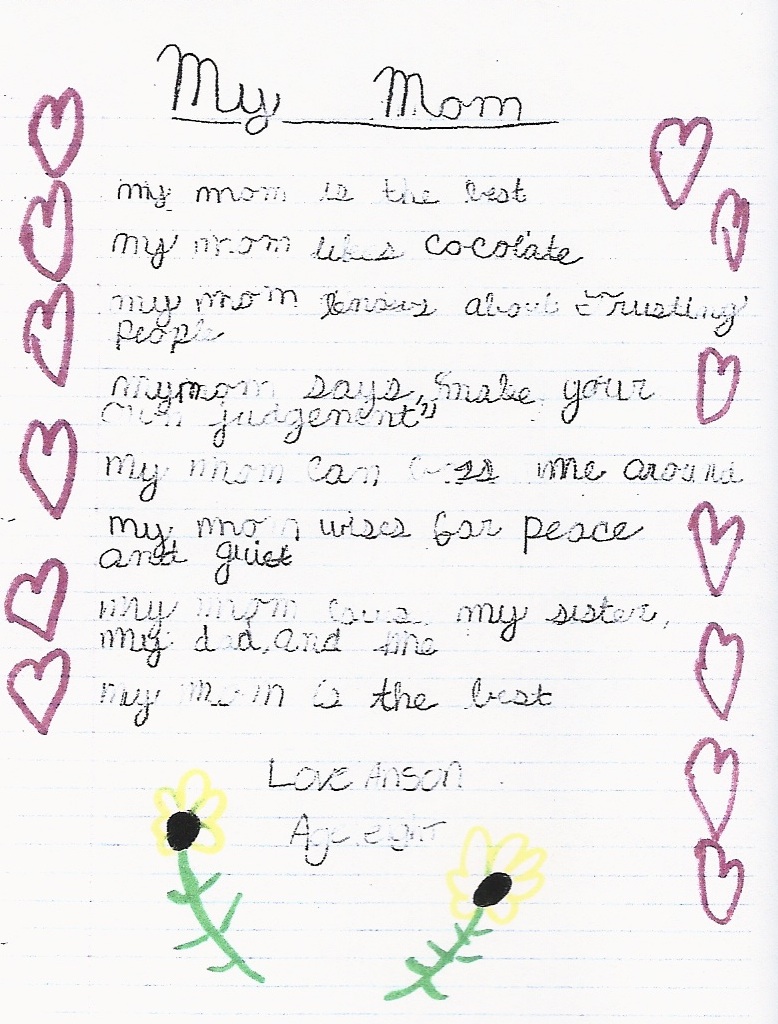 My Mom
my mom is the best
my mom likes cocolate
my mom knows about trusting
people
my mom says, "make your
own judgement"
my mom can boss me around
my mom wises for peace
and quiet
my mom loves my sister,
my dad, and me
my mom is the best
Love Anson
Age eight